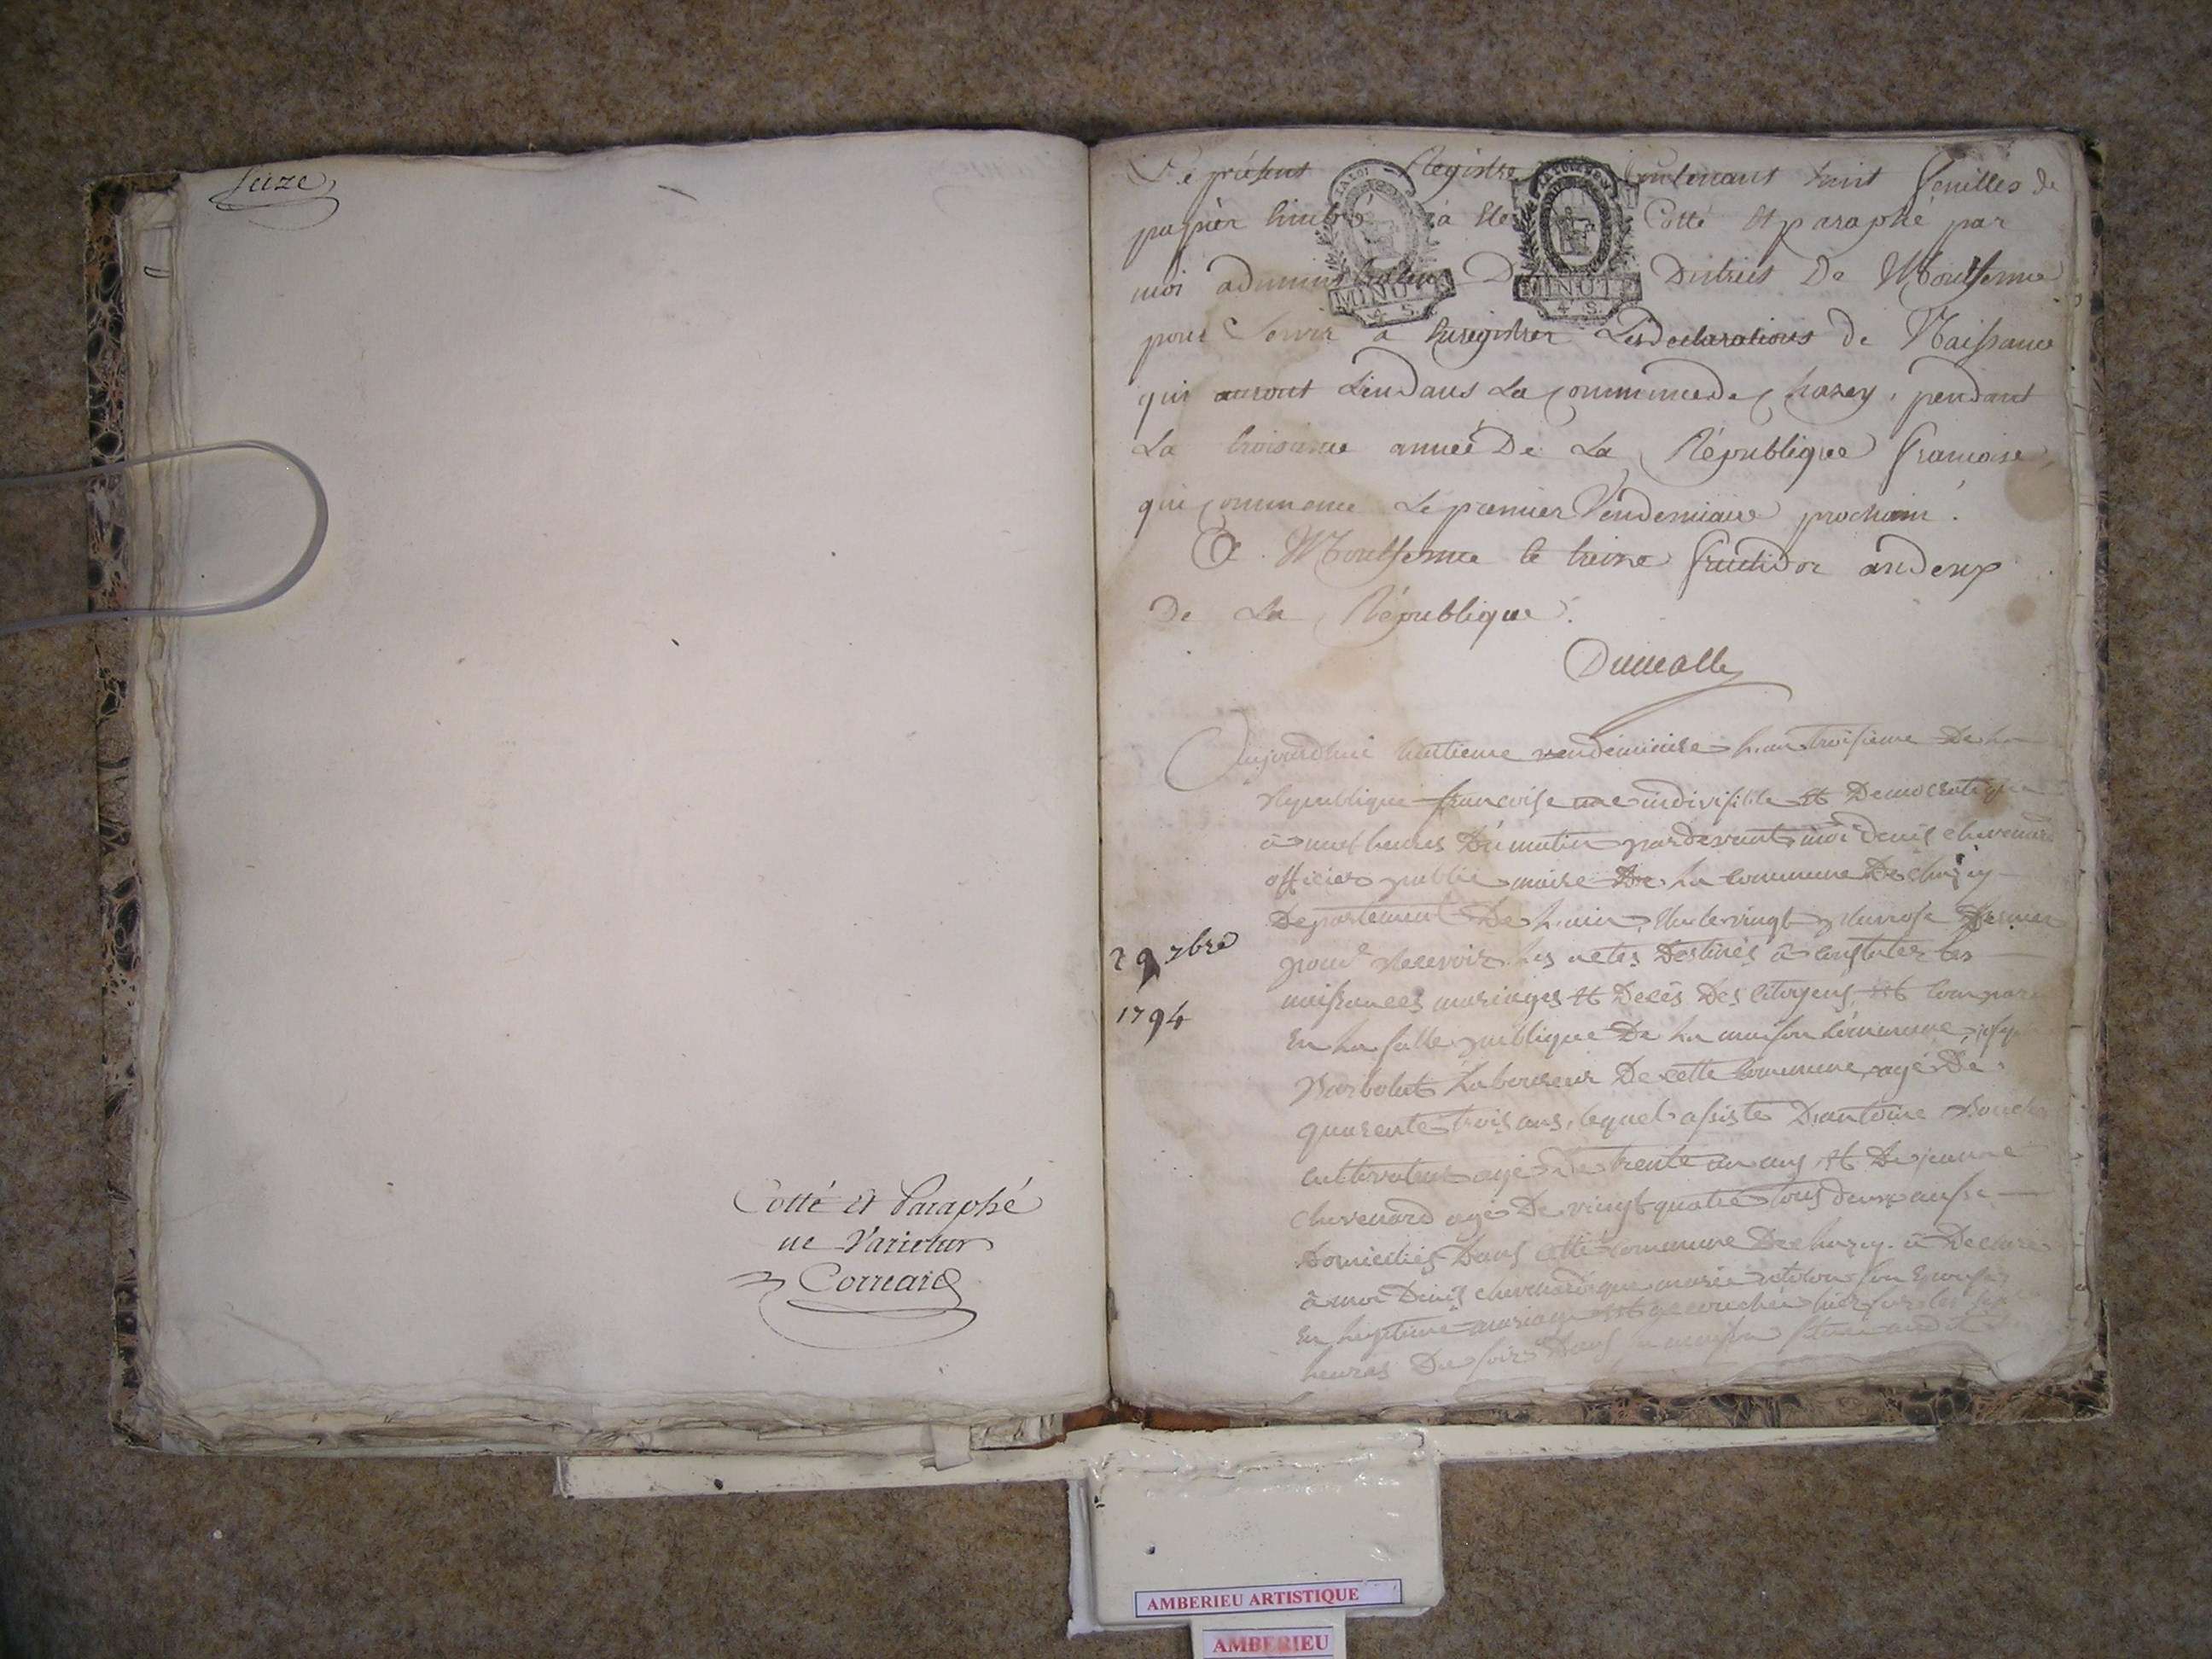 seize
Cotté et Paraphé
ne Varietur
Le présent Registre Contenant huit feuilles de
papier timbré à été Cotté et paraphé par
moi administrateur Du District De Montferme
pour Servir a Enregistrer Les declarations de Naissance
qui auront Lieu dans La Commune de Chazey, pendant
La troisieme année De La République francaise,
qui Commence Le premier Vendemiaire prochain.
A Montferme le treize fructidor an deux
De La République.
LA LOI
MINUTE
4 S
MINUTE
4 S
Aujourdhui huitieme vendemiaire l'an troisieme De La
Republique francoise une indivisible et Democratique
à neuf heures Du matin pardevant moi Denis chevenard
officier public maire De La commune De chazey
Departement De L'ain, Elu le vingt pluviose Dernier
pour Recevoir Les actes Destinés à constater les
naissances mariages et Decès Des Citoyens, est comparu
En La salle publique De La maison commune,
Laboureur De cette commune, agé De
quarente trois ans, lequel assisté D'antoine
cultivateur agé De trente un ans et De
chevenard agé De vingt quatre tous deux aussi
Domiciliés Dans cette commune De chazey. à Declaré
à moi Denis chevenard que marie son Epouse
En Legitime mariage est accouchée hier sur les sept
heures Du soir Dans sa maison située
29 7bre
1794
AMBERIEU ARTISTIQUE
AMBERIEU